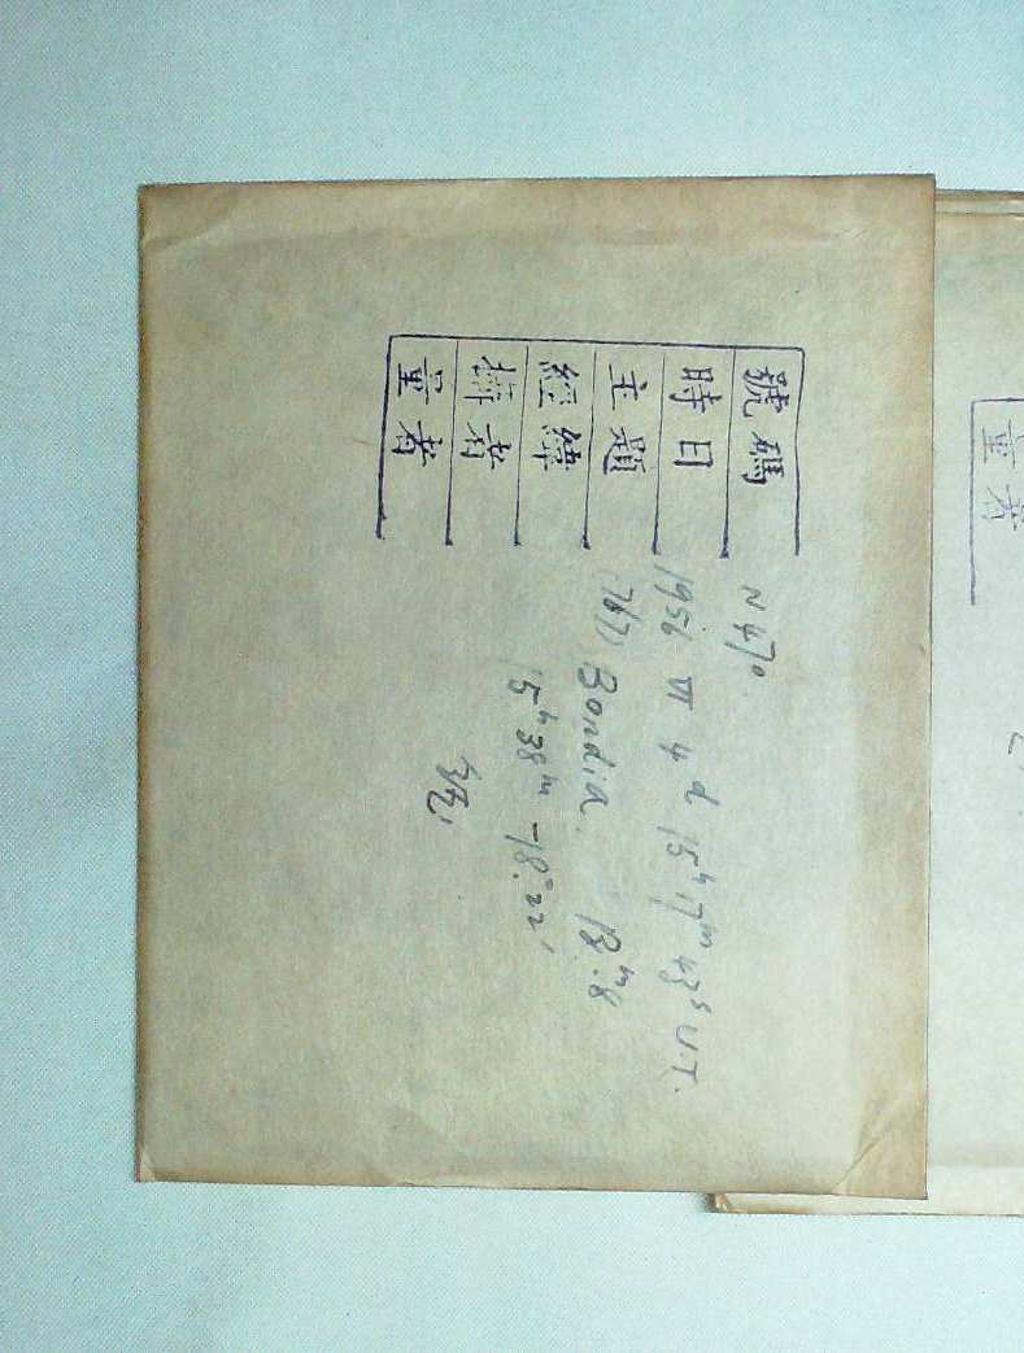 號碼 N470
時日 1956 VI 4d 15h17m43s U.T.
主題 (767) Bondia. 13m.8
經緯 15h38m -18°22'
攝者
量者
量者